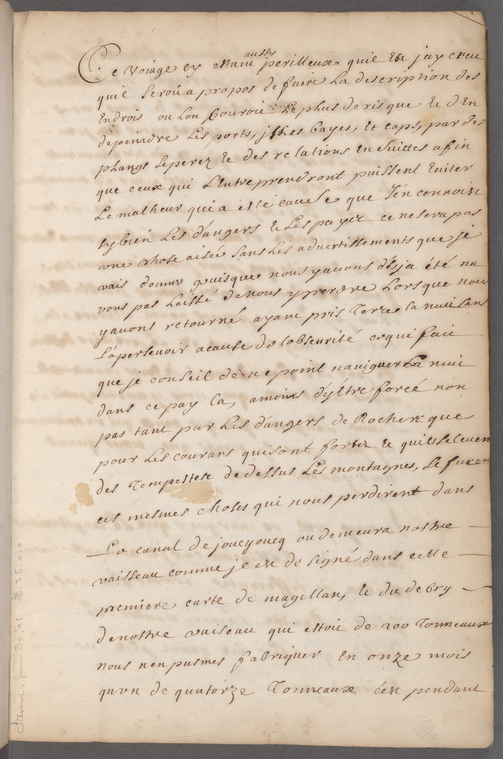 Ce voiage cy estant aussy perilleux qu'il est jay creu
quil seroit a propos de faire la description des
Endrois ou lon couroit le plus de risque & d'En
depeindre les ports, isthes bayes, et caps, par des
plangs seperez & des relations En suittes afin
que ceux qui L'entreprendront puissent Eviter
Le malheur qui a esté cause que J'en connoist
sy bien Les dangers & Les payez ce ne sera pas
une chose aisée sans les advertissements que je
vais donner puisque nous yavons desja été na
vons pas laissé de nous y perdre Lorsque nous
yavons retourné ayant pris Terre la nuit sans
L'apersevoir acause de lobscurité ce qui fait
que je conseil de ne point naviguer La nuit
dans ce pay la, amoins d'y Estre forcé non
pas tant par les dangers de Rocherx que
pour Les courans qui sont forts & qui se levent
des Tempestes de dessus Les montagnes, Ce furent
ces mismes choses qui nous perdirent dans
Le canal de joucyoucq ou demeura nostre
vaisseau comme je l'é de signé dans cette
premiere carte de magellan, & du debry
de nostre vaiseau qui estoit de 200 Tonneaux
nous n'en pusmes fabriquer En onze mois
qu'un de quatorze Tonneaux
pendant